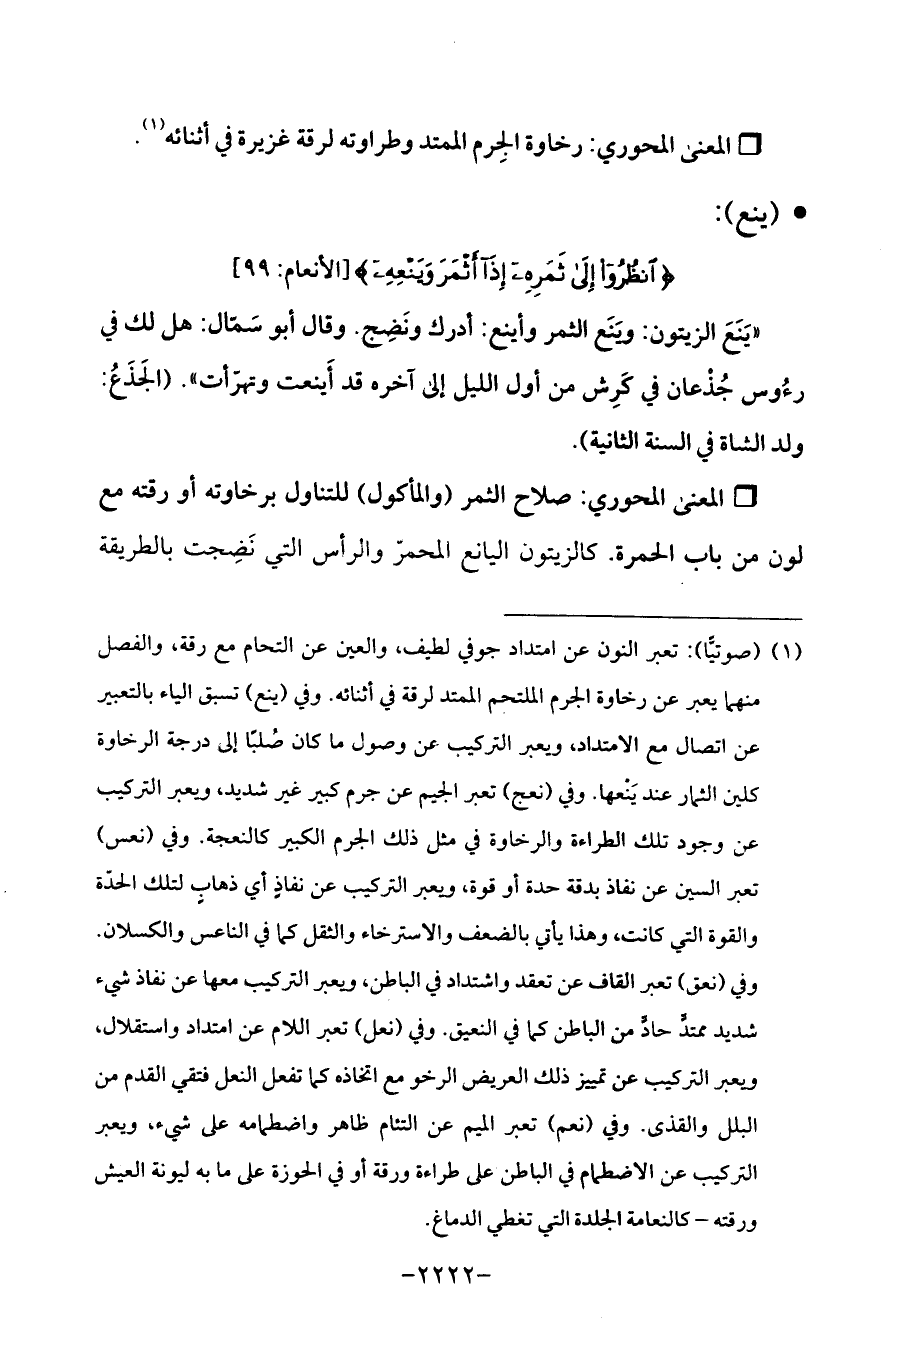 □ المعنى المحوري: رخاوة الجِرم الممتد وطراوته لرقة غزيرة في أثنائه(١).
• (ينع):
﴿ٱنظُرُوٓا۟ إِلَىٰ ثَمَرِهِۦٓ إِذَآ أَثْمَرَ وَيَنْعِهِۦٓ﴾ [الأنعام: ٩٩]
«يَنَعَ الزيتون: وينَع الثمر وأينع: أدرك ونَضِج. وقال أبو سَمّال: هل لك في
رءُوس جُذْعان في كَرِش من أول الليل إلى آخره قد أَينعت وتهرّأت». (الجَذَعُ:
ولد الشاة في السنة الثانية).
□ المعنى المحوري: صلاح الثمر (والمأكول) للتناول برخاوته أو رقته مع
لون من باب الحمرة. كالزيتون اليانع المحمرّ والرأس التي نَضِجت بالطريقة
(١) (صوتيًّا): تعبر النون عن امتداد جوفي لطيف، والعين عن التحام مع رقة، والفصل
منهما يعبر عن رخاوة الجرم الملتحم الممتد لرقة في أثنائه. وفي (ينع) تسبق الياء بالتعبير
عن اتصال مع الامتداد، ويعبر التركيب عن وصول ما كان صُلبًا إلى درجة الرخاوة
كلين الثمار عند يَنْعها. وفي (نعج) تعبر الجيم عن جرم كبير غير شديد، ويعبر التركيب
عن وجود تلك الطراءة والرخاوة في مثل ذلك الجرم الكبير كالنعجة. وفي (نعس)
تعبر السين عن نفاذ بدقة حدة أو قوة، ويعبر التركيب عن نفاذٍ أي ذهابٍ لتلك الحدّة
والقوة التي كانت، وهذا يأتي بالضعف والاسترخاء والثقل كما في الناعس والكسلان.
وفي (نعق) تعبر القاف عن تعقد واشتداد في الباطن، ويعبر التركيب معها عن نفاذ شيء
شديد ممتدٍّ حادٍّ من الباطن كما في النعيق. وفي (نعل) تعبر اللام عن امتداد واستقلال،
ويعبر التركيب عن تميز ذلك العريض الرخو مع اتخاذه كما تفعل النعل فتقي القدم من
البلل والقذى. وفي (نعم) تعبر الميم عن التئام ظاهر واضطمامه على شيء، ويعبر
التركيب عن الاضطمام في الباطن على طراءة ورقة أو في الحوزة على ما به ليونة العيش
ورقته – كالنعامة الجلدة التي تغطي الدماغ.
-٢٢٢٢-